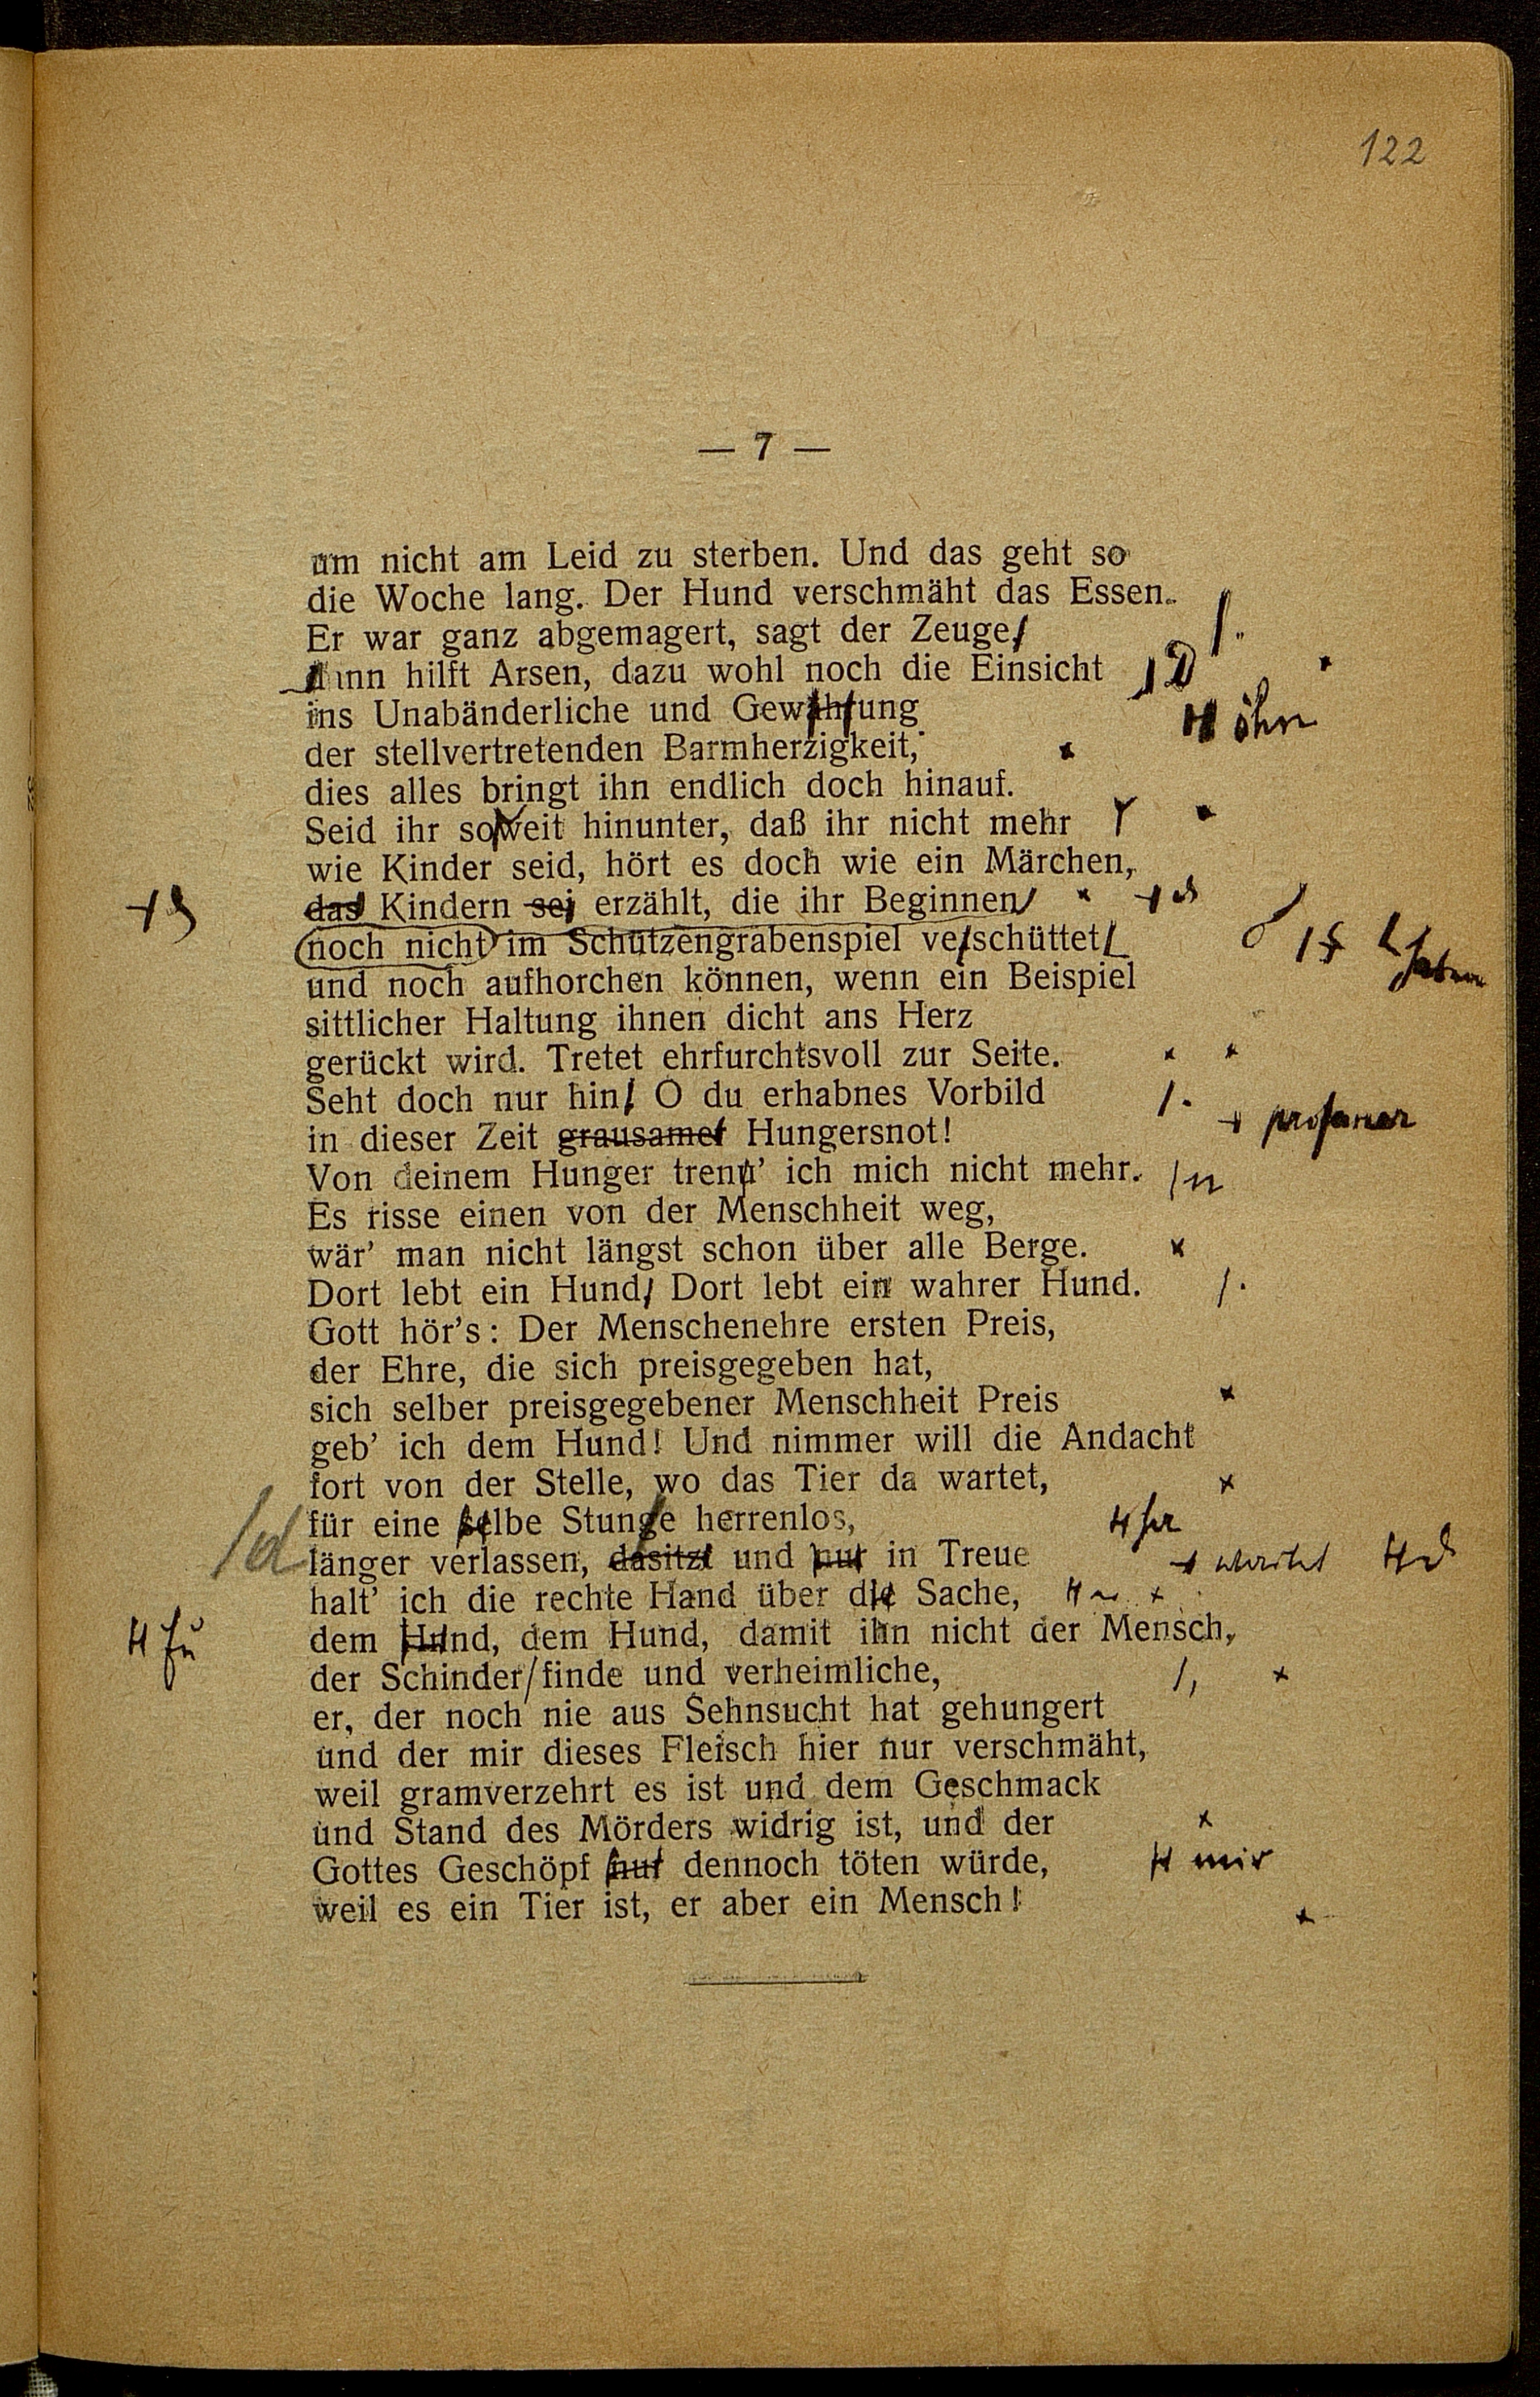 122
— 7 —
um nicht am Leid zu sterben. Und das geht so
die Woche lang. Der Hund verschmäht das Essen.
Er war ganz abgemagert, sagt der Zeuge, /.
dann hilft Arsen, dazu wohl noch die Einsicht D
ins Unabänderliche und Gewährung öhn
der stellvertretenden Barmherzigkeit, x
dies alles bringt ihn endlich doch hinauf.
Seid ihr soweit hinunter, daß ihr nicht mehr x
wie Kinder seid, hört es doch wie ein Märchen,
das Kindern sei erzählt, die ihr Beginnen x
noch nicht im Schützengrabenspiel verschüttet haben
und noch aufhorchen können, wenn ein Beispiel
sittlicher Haltung ihnen dicht ans Herz
gerückt wird. Tretet ehrfurchtsvoll zur Seite. x x
Seht doch nur hin! O du erhabnes Vorbild /.
in dieser Zeit grausamer Hungersnot! profaner
Von deinem Hunger trenn' ich mich nicht mehr. /n
Es risse einen von der Menschheit weg,
wär' man nicht längst schon über alle Berge. x
Dort lebt ein Hund! Dort lebt ein wahrer Hund. /.
Gott hör's: Der Menschenehre ersten Preis,
der Ehre, die sich preisgegeben hat,
sich selber preisgegebener Menschheit Preis x
geb' ich dem Hund! Und nimmer will die Andacht
fort von der Stelle, wo das Tier da wartet, x
für eine selbe Stunde herrenlos,
/d länger verlassen, dasitzt und nur in Treue wartet
halt' ich die rechte Hand über die Sache, x
dem Hund, dem Hund, damit ihn nicht der Mensch,
der Schinder/finde und verheimliche, /, x
er, der noch nie aus Sehnsucht hat gehungert
und der mir dieses Fleisch hier nur verschmäht,
weil gramverzehrt es ist und dem Geschmack
und Stand des Mörders widrig ist, und der x
Gottes Geschöpf nur dennoch töten würde, mir
weil es ein Tier ist, er aber ein Mensch! x